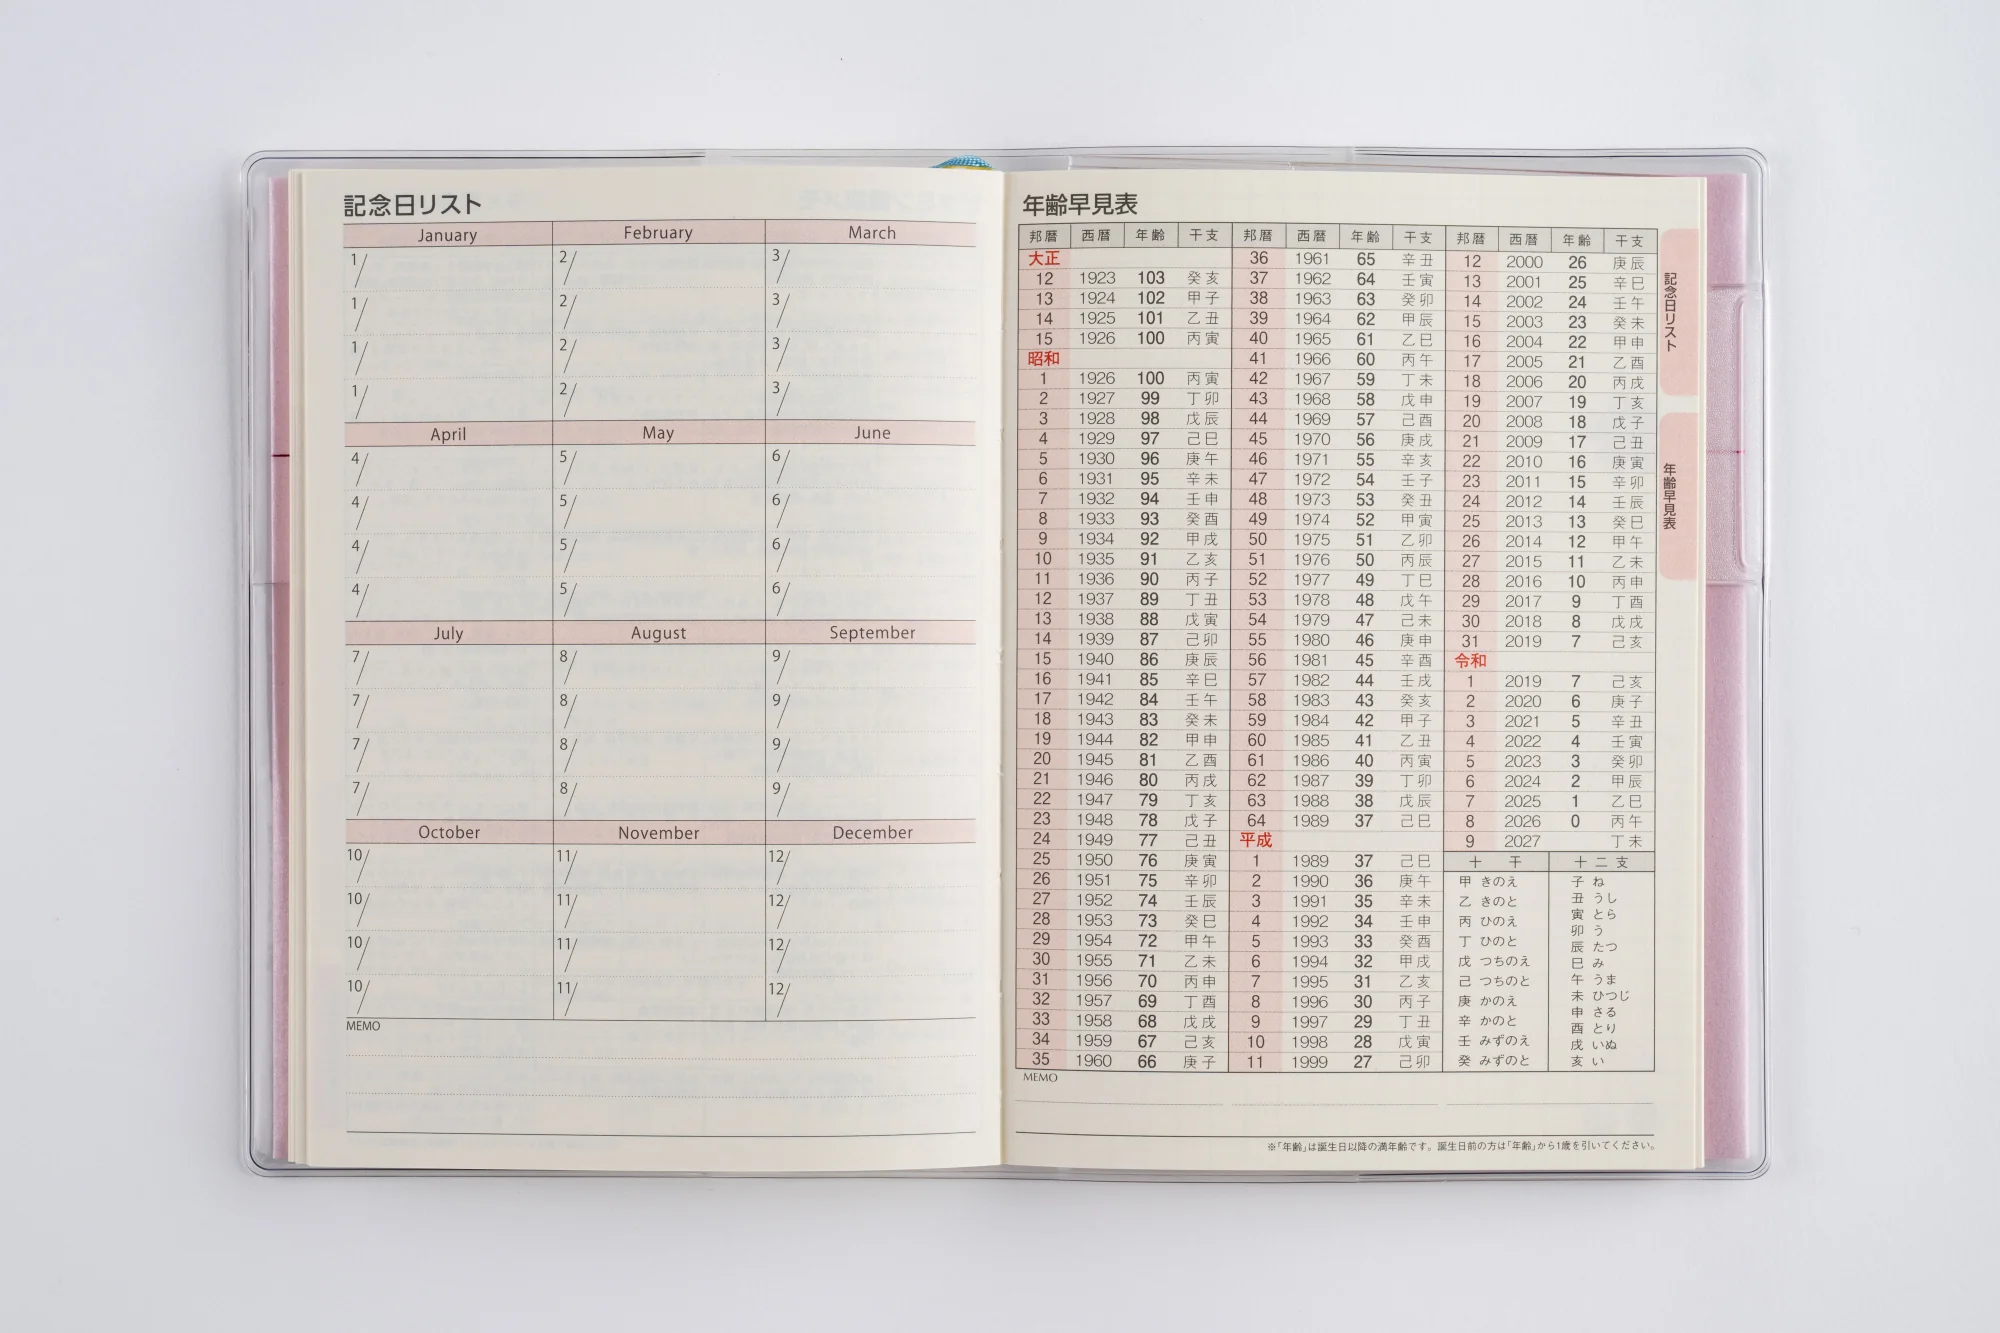 記念日リスト
January February March
1/ 2/ 3/
1/ 2/ 3/
1/ 2/ 3/
1/ 2/ 3/
April May June
4/ 5/ 6/
4/ 5/ 6/
4/ 5/ 6/
4/ 5/ 6/
July August September
7/ 8/ 9/
7/ 8/ 9/
7/ 8/ 9/
7/ 8/ 9/
October November December
10/ 11/ 12/
10/ 11/ 12/
10/ 11/ 12/
10/ 11/ 12/
MEMO
年齢早見表
邦暦 西暦 年齢 干支
大正
12 1923 103 癸亥
13 1924 102 甲子
14 1925 101 乙丑
15 1926 100 丙寅
昭和
1 1926 100 丙寅
2 1927 99 丁卯
3 1928 98 戊辰
4 1929 97 己巳
5 1930 96 庚午
6 1931 95 辛未
7 1932 94 壬申
8 1933 93 癸酉
9 1934 92 甲戌
10 1935 91 乙亥
11 1936 90 丙子
12 1937 89 丁丑
13 1938 88 戊寅
14 1939 87 己卯
15 1940 86 庚辰
16 1941 85 辛巳
17 1942 84 壬午
18 1943 83 癸未
19 1944 82 甲申
20 1945 81 乙酉
21 1946 80 丙戌
22 1947 79 丁亥
23 1948 78 戊子
24 1949 77 己丑
25 1950 76 庚寅
26 1951 75 辛卯
27 1952 74 壬辰
28 1953 73 癸巳
29 1954 72 甲午
30 1955 71 乙未
31 1956 70 丙申
32 1957 69 丁酉
33 1958 68 戊戌
34 1959 67 己亥
35 1960 66 庚子
邦暦 西暦 年齢 干支
36 1961 65 辛丑
37 1962 64 壬寅
38 1963 63 癸卯
39 1964 62 甲辰
40 1965 61 乙巳
41 1966 60 丙午
42 1967 59 丁未
43 1968 58 戊申
44 1969 57 己酉
45 1970 56 庚戌
46 1971 55 辛亥
47 1972 54 壬子
48 1973 53 癸丑
49 1974 52 甲寅
50 1975 51 乙卯
51 1976 50 丙辰
52 1977 49 丁巳
53 1978 48 戊午
54 1979 47 己未
55 1980 46 庚申
56 1981 45 辛酉
57 1982 44 壬戌
58 1983 43 癸亥
59 1984 42 甲子
60 1985 41 乙丑
61 1986 40 丙寅
62 1987 39 丁卯
63 1988 38 戊辰
64 1989 37 己巳
平成
1 1989 37 己巳
2 1990 36 庚午
3 1991 35 辛未
4 1992 34 壬申
5 1993 33 癸酉
6 1994 32 甲戌
7 1995 31 乙亥
8 1996 30 丙子
9 1997 29 丁丑
10 1998 28 戊寅
11 1999 27 己卯
邦暦 西暦 年齢 干支
12 2000 26 庚辰
13 2001 25 辛巳
14 2002 24 壬午
15 2003 23 癸未
16 2004 22 甲申
17 2005 21 乙酉
18 2006 20 丙戌
19 2007 19 丁亥
20 2008 18 戊子
21 2009 17 己丑
22 2010 16 庚寅
23 2011 15 辛卯
24 2012 14 壬辰
25 2013 13 癸巳
26 2014 12 甲午
27 2015 11 乙未
28 2016 10 丙申
29 2017 9 丁酉
30 2018 8 戊戌
31 2019 7 己亥
令和
1 2019 7 己亥
2 2020 6 庚子
3 2021 5 辛丑
4 2022 4 壬寅
5 2023 3 癸卯
6 2024 2 甲辰
7 2025 1 乙巳
8 2026 0 丙午
9 2027 丁未
十干
甲 きのえ
乙 きのと
丙 ひのえ
丁 ひのと
戊 つちのえ
己 つちのと
庚 かのえ
辛 かのと
壬 みずのえ
癸 みずのと
十二支
子 ね
丑 うし
寅 とら
卯 う
辰 たつ
巳 み
午 うま
未 ひつじ
申 さる
酉 とり
戌 いぬ
亥 い
MEMO
※「年齢」は誕生日以降の満年齢です。誕生日前の方は「年齢」から1歳を引いてください。
記念日リスト
年齢早見表